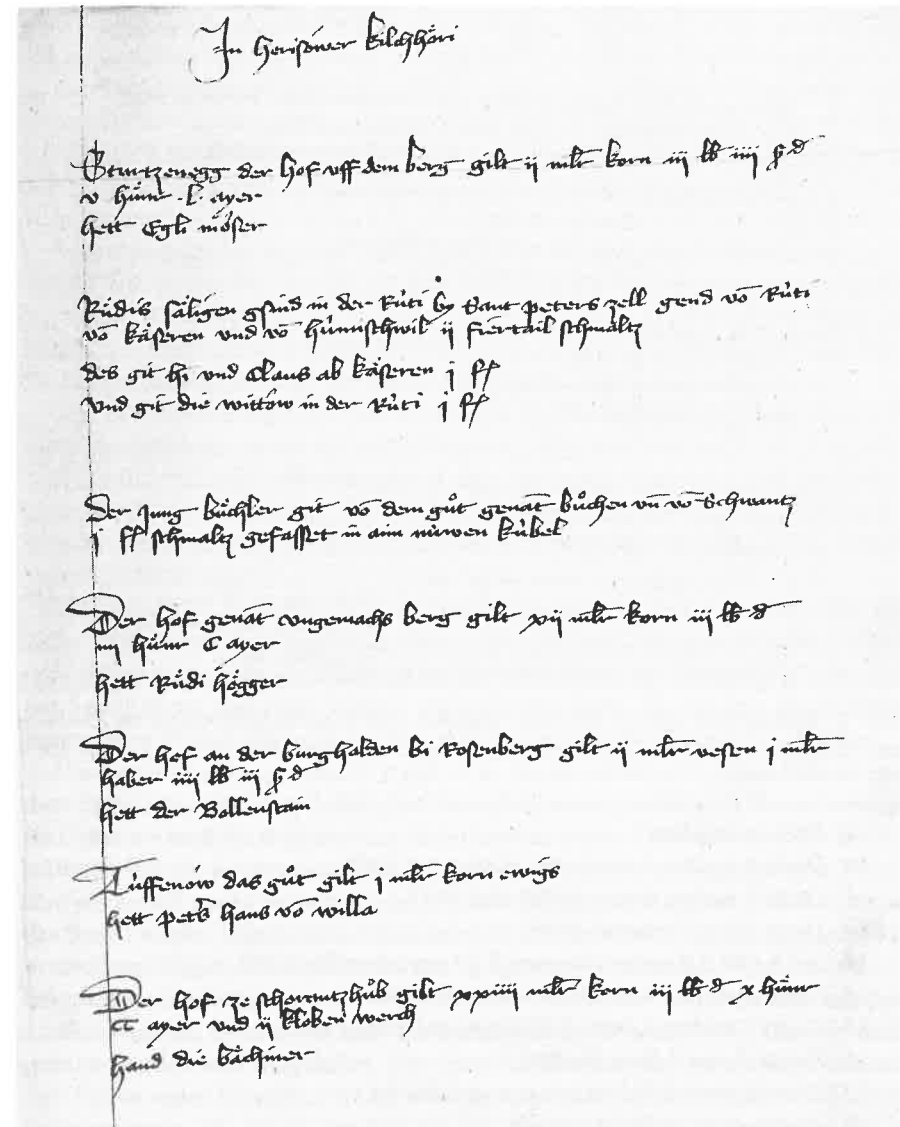 In Herisöwer kilchhöri
Sturtzenegg der hof uff dem berg gilt ii mlr korn iii lb iiii ß d
v hůnr .l. ayer
hett Egli möser
Růdis säligen gsind in der Rüti by Sant Peters zell gend vō Rüti
vō käseren und vō hünnischwil ii fiertail schmaltz
des git hi und Claus ab käseren j ff
und git die wittöw in der Rüti j ff
Der jung büchler git vō dem gůt genāt bůchen un vō Schwantz
j ff schmaltz gefasset in aim nüwen kübel
Der hof genāt ungemachs berg gilt xii mlr korn iii lb d
iiii hůnr C ayer
hett Růdi högger
Der hof an der burghalden bi Rosenberg gilt ii mlr vesen j mlr
haber iiii lb iii ß d
hett der Bollenstain
Tüffenöw das gůt gilt j mlr korn ewigs
hett peters hans vō willa
Der hof ze schorantzhůb gilt xxiiii mlr korn iii lb d x hůnr
CC ayer und ii kloben werch
hand die bächiner